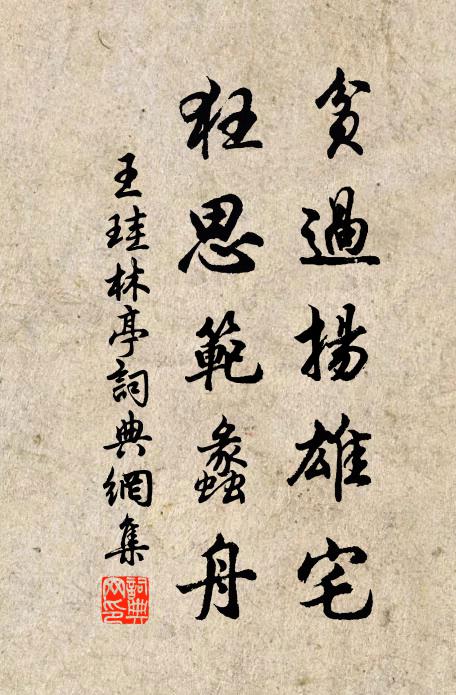 貧過揚雄宅
狂思範蠡舟
王珪林亭詞典網集
詞典網印